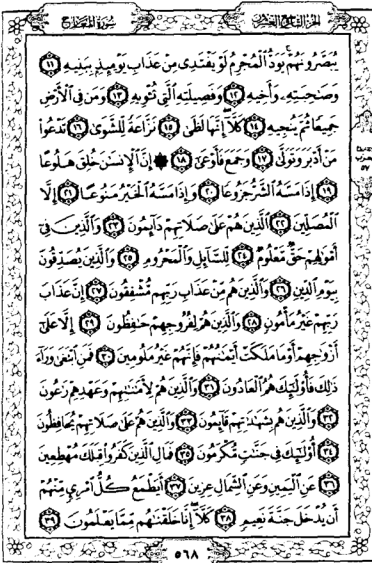 الجزء التاسع والعشرون
سورة المعارج
يُبَصَّرُونَهُمْ يَوَدُّ الْمُجْرِمُ لَوْ يَفْتَدِى مِنْ عَذَابِ يَوْمِئِذٍ بِبَنِيهِ ١١
وَصَٰحِبَتِهِ وَأَخِيهِ ١٢ وَفَصِيلَتِهِ الَّتِى تُـْٔوِيهِ ١٣ وَمَن فِى الْأَرْضِ
جَمِيعًا ثُمَّ يُنجِيهِ ١٤ كَلَّا إِنَّهَا لَظَىٰ ١٥ نَزَّاعَةً لِّلشَّوَىٰ ١٦ تَدْعُوا۟
مَنْ أَدْبَرَ وَتَوَلَّىٰ ١٧ وَجَمَعَ فَأَوْعَىٰ ١٨ ۞ إِنَّ الْإِنسَٰنَ خُلِقَ هَلُوعًا
١٩ إِذَا مَسَّهُ الشَّرُّ جَزُوعًا ٢٠ وَإِذَا مَسَّهُ الْخَيْرُ مَنُوعًا ٢١ إِلَّا
الْمُصَلِّينَ ٢٢ الَّذِينَ هُمْ عَلَىٰ صَلَاتِهِمْ دَآئِمُونَ ٢٣ وَالَّذِينَ فِىٓ
أَمْوَٰلِهِمْ حَقٌّ مَّعْلُومٌ ٢٤ لِّلسَّآئِلِ وَالْمَحْرُومِ ٢٥ وَالَّذِينَ يُصَدِّقُونَ
بِيَوْمِ الدِّينِ ٢٦ وَالَّذِينَ هُم مِّنْ عَذَابِ رَبِّهِم مُّشْفِقُونَ ٢٧ إِنَّ عَذَابَ
رَبِّهِمْ غَيْرُ مَأْمُونٍ ٢٨ وَالَّذِينَ هُمْ لِفُرُوجِهِمْ حَٰفِظُونَ ٢٩ إِلَّا عَلَىٰٓ
أَزْوَٰجِهِمْ أَوْ مَا مَلَكَتْ أَيْمَٰنُهُمْ فَإِنَّهُمْ غَيْرُ مَلُومِينَ ٣٠ فَمَنِ ابْتَغَىٰ وَرَآءَ
ذَٰلِكَ فَأُو۟لَٰٓئِكَ هُمُ الْعَادُونَ ٣١ وَالَّذِينَ هُمْ لِأَمَٰنَٰتِهِمْ وَعَهْدِهِمْ رَٰعُونَ
٣٢ وَالَّذِينَ هُم بِشَهَٰدَٰتِهِمْ قَآئِمُونَ ٣٣ وَالَّذِينَ هُمْ عَلَىٰ صَلَاتِهِمْ يُحَافِظُونَ
٣٤ أُو۟لَٰٓئِكَ فِى جَنَّٰتٍ مُّكْرَمُونَ ٣٥ فَمَالِ الَّذِينَ كَفَرُوا۟ قِبَلَكَ مُهْطِعِينَ
٣٦ عَنِ الْيَمِينِ وَعَنِ الشِّمَالِ عِزِينَ ٣٧ أَيَطْمَعُ كُلُّ امْرِئٍ مِّنْهُمْ
أَن يُدْخَلَ جَنَّةَ نَعِيمٍ ٣٨ كَلَّا إِنَّا خَلَقْنَٰهُم مِّمَّا يَعْلَمُونَ ٣٩
٥٦٨